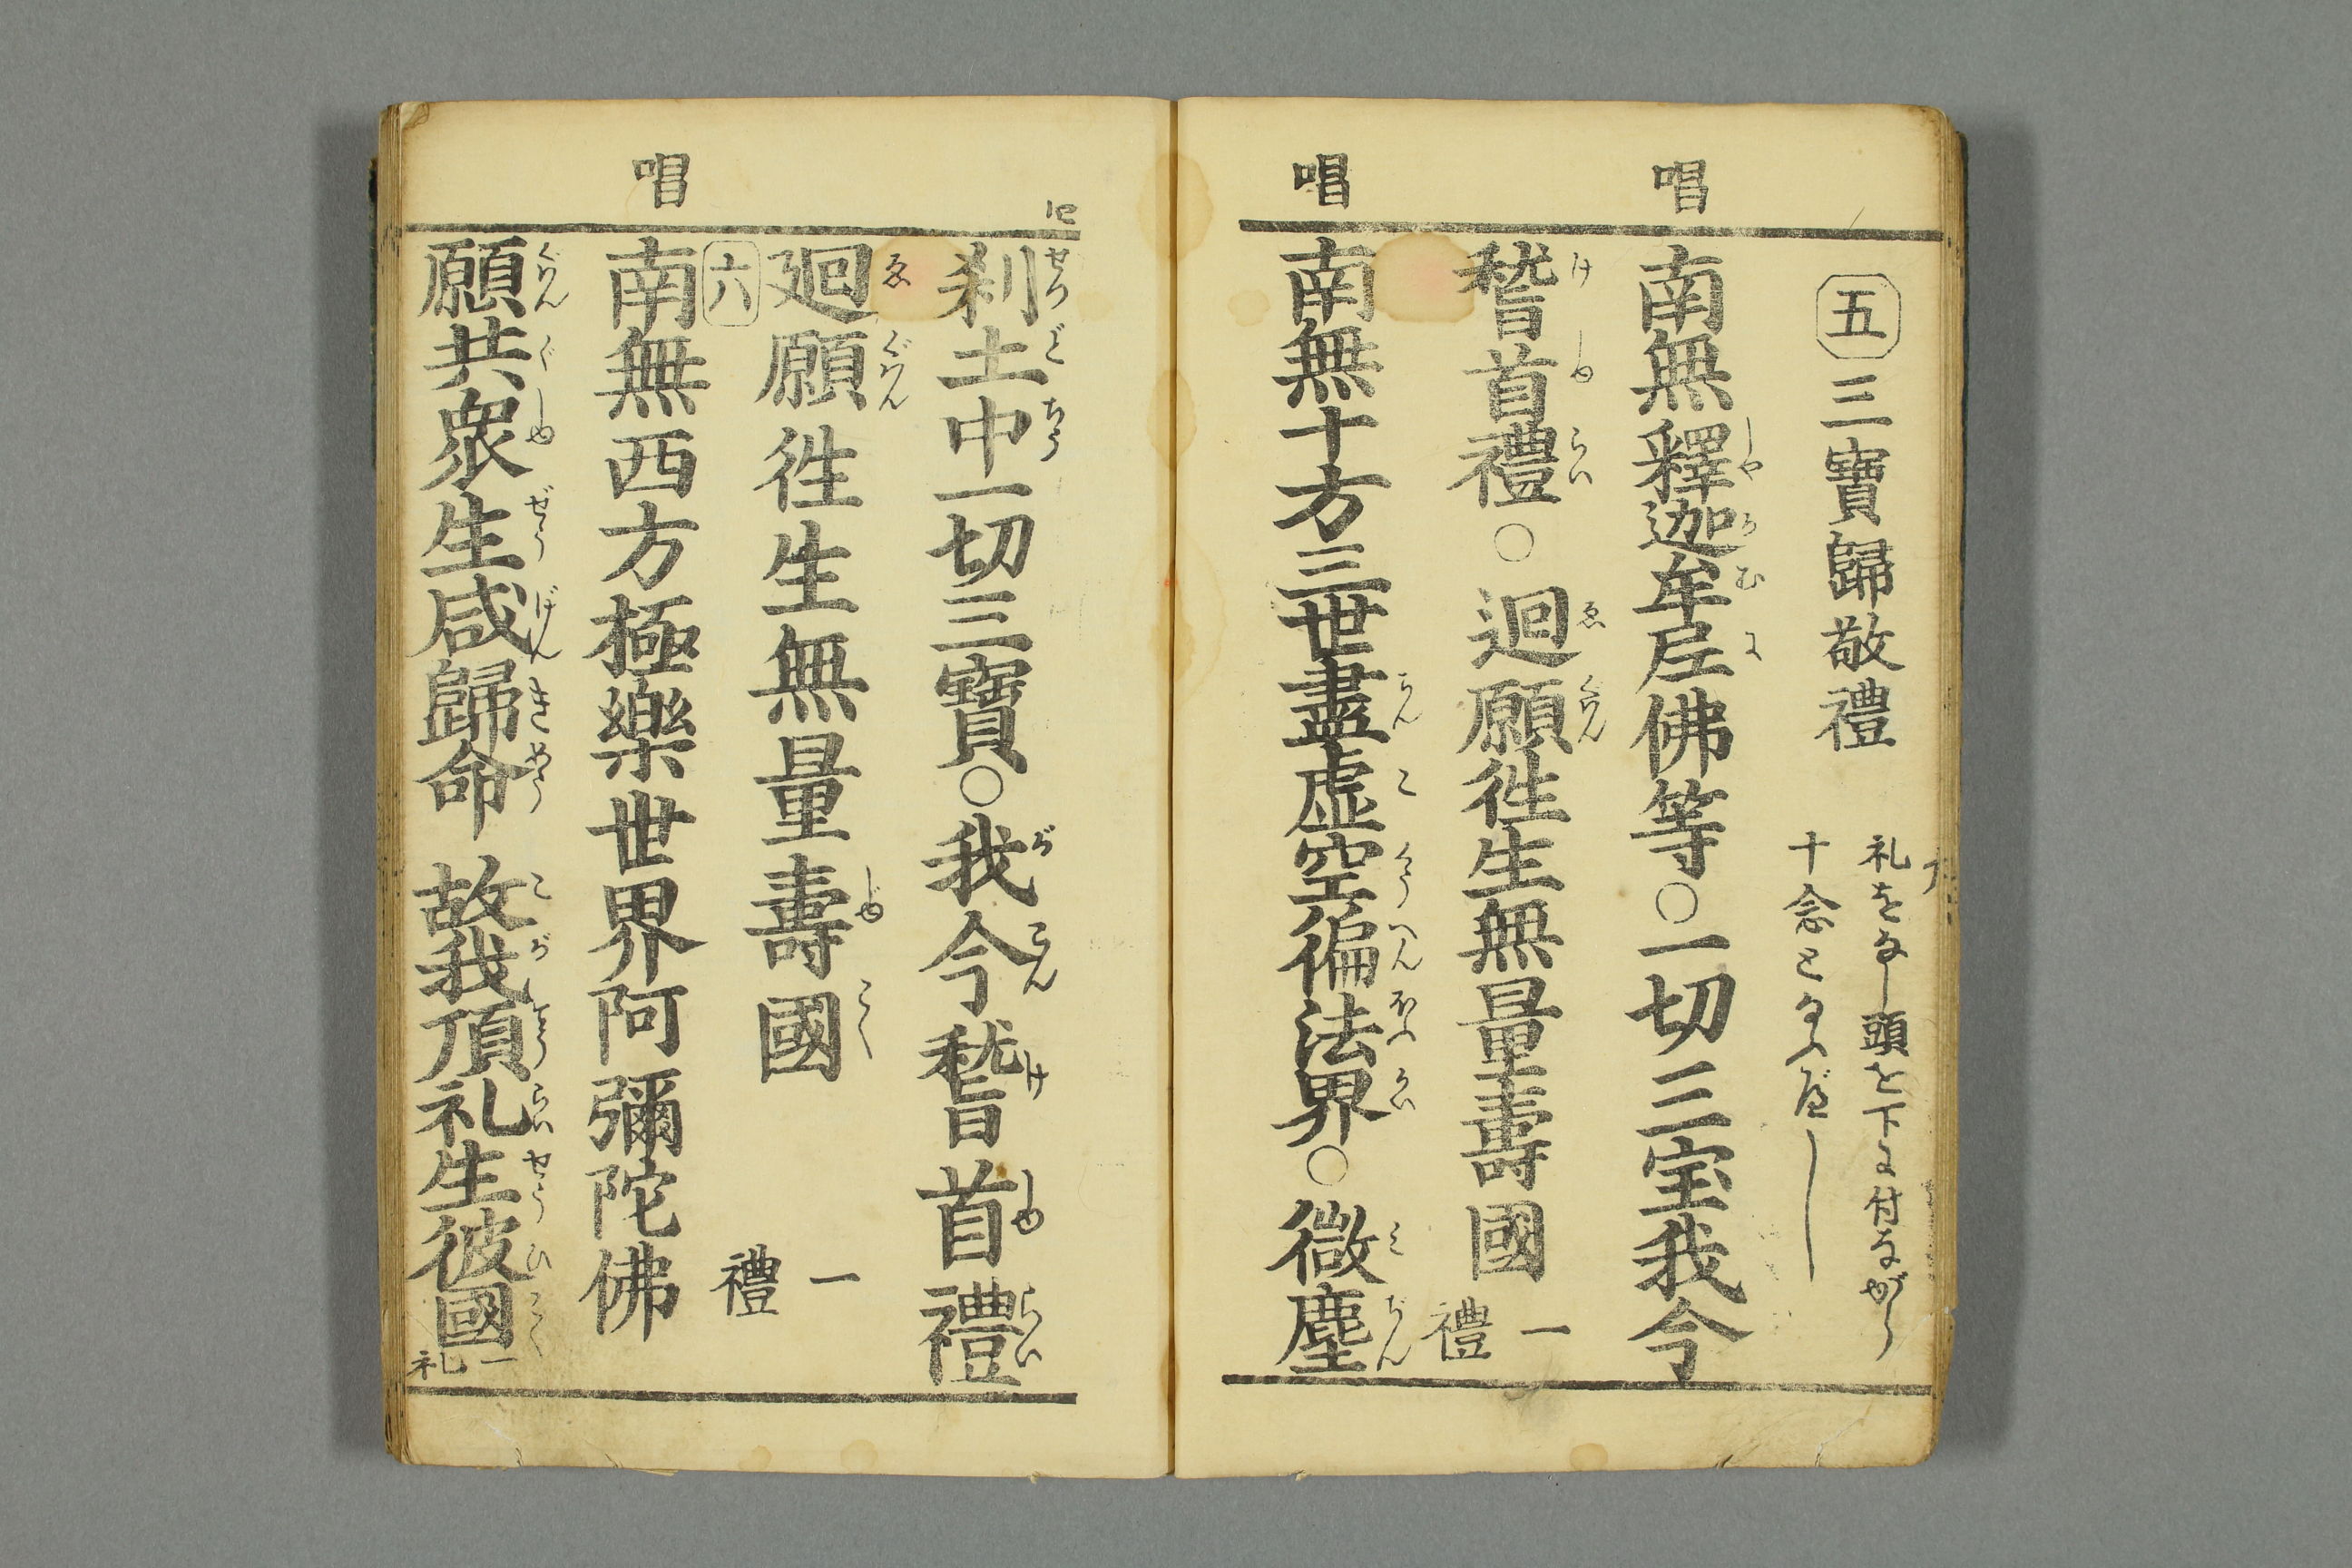 五 三寶歸敬禮
礼をなし頭を下に付ながら
十念となふべし
唱
南無釋迦牟尼佛等○一切三宝我今
稽首禮○廻願徃生無量壽國 一禮
唱
南無十方三世盡虚空徧法界○微塵
刹土中一切三寶○我今稽首禮
廻願徃生無量壽國 一禮
六
唱
南無西方極樂世界阿彌陀佛
願共衆生咸歸命 故我頂礼生彼國 一礼